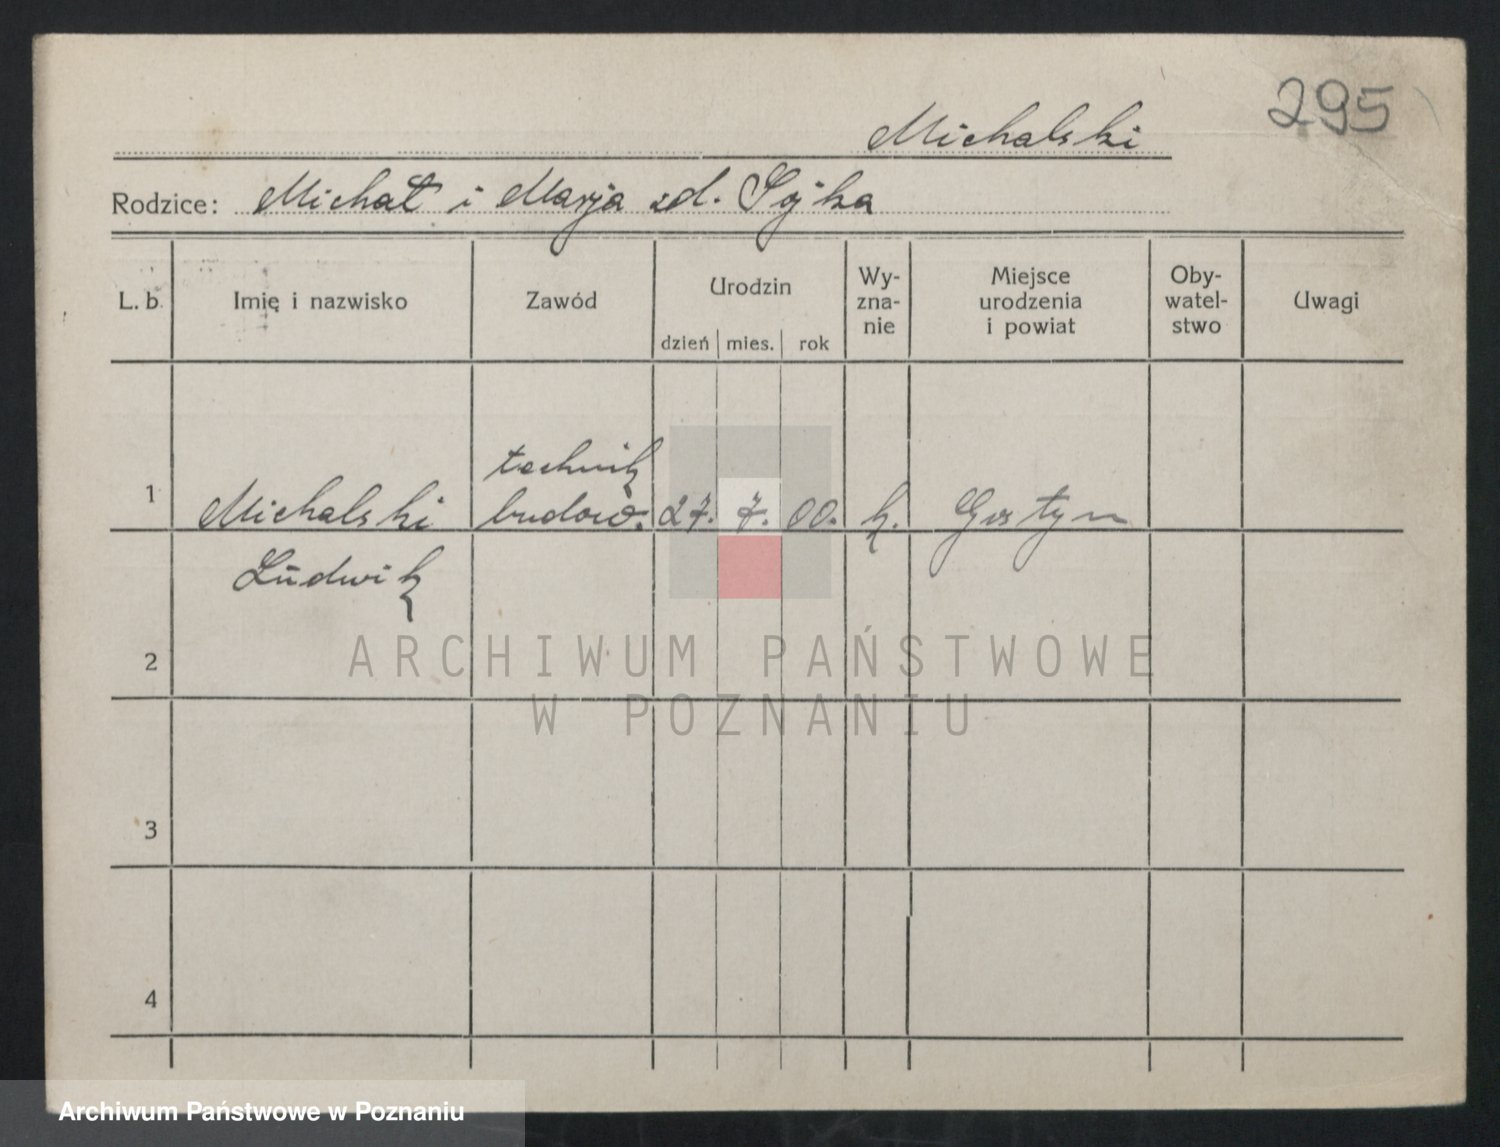 295
Michalski
Rodzice: Michał i Marja zd. Sojka
L. b. Imię i nazwisko Zawód Urodzin Wy-zna-nie Miejsce urodzenia i powiat Oby-watel-stwo Uwagi
dzień mies. rok
technik
1 Michalski budow. 27. 7. 00. k. Gostyn
Ludwik
2
3
4
ARCHIWUM PAŃSTWOWE
W POZNANIU
Archiwum Państwowe w Poznaniu